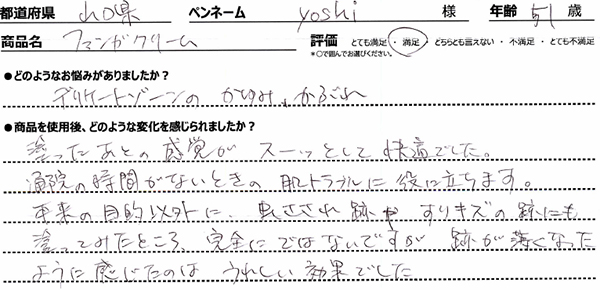 都道府県 山口県 ペンネーム yoshi 様 年齢 51 歳
商品名 ファンガクリーム 評価 とても満足・満足・どちらとも言えない・不満足・とても不満足
*○で囲んでお選びください。
●どのようなお悩みがありましたか?
デリケートゾーンの かゆみ、かぶれ
●商品を使用後、どのような変化を感じられましたか?
塗ったあとの感覚が スーッとして 快適でした。
通院の時間がないときの 肌トラブルに 役に立ちます。
本来の目的以外に、虫さされ跡や すりキズの跡にも
塗ってみたところ、完全に ではないですが 跡が薄くなった
ように感じたのは うれしい効果でした